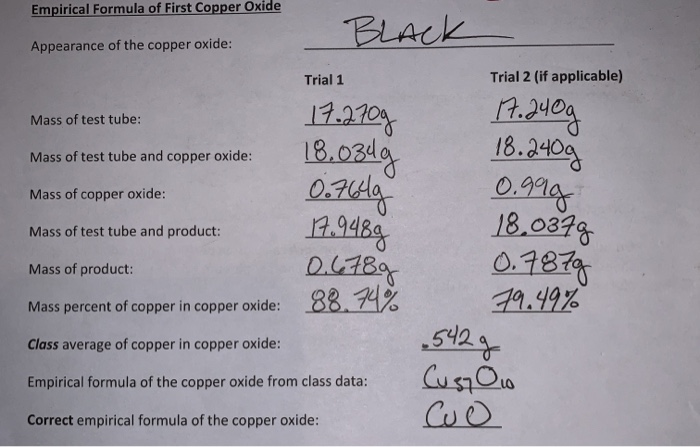 Empirical Formula of First Copper Oxide
Appearance of the copper oxide: BLACK
Trial 1 Trial 2 (if applicable)
Mass of test tube: 17.270g 17.240g
Mass of test tube and copper oxide: 18.034g 18.240g
Mass of copper oxide: 0.764g 0.99g
Mass of test tube and product: 17.948g 18.037g
Mass of product: 0.678g 0.787g
Mass percent of copper in copper oxide: 88.74% 79.49%
Class average of copper in copper oxide: .542g
Empirical formula of the copper oxide from class data: Cu57O10
Correct empirical formula of the copper oxide: CuO